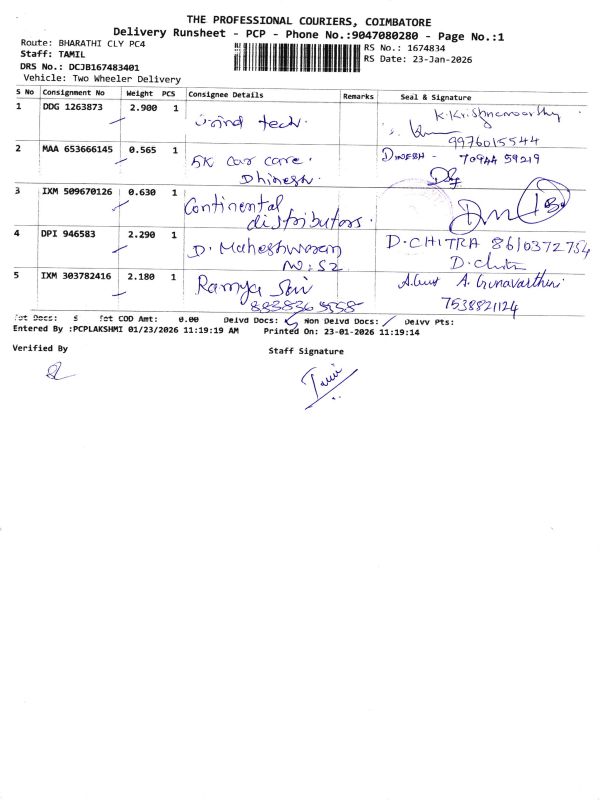 THE PROFESSIONAL COURIERS, COIMBATORE
Delivery Runsheet - PCP - Phone No.:9047080280 - Page No.:1
Route: BHARATHI CLY PC4
RS No.: 1674834
Staff: TAMIL
RS Date: 23-Jan-2026
DRS No.: DCJB167483401
Vehicle: Two Wheeler Delivery
S No Consignment No Weight PCS Consignee Details Remarks Seal & Signature
1 DDG 1263873 2.900 1 tech. K.Krishnamoorthy
9976015544
2 MAA 653666145 0.565 1 SK car care. DINESH - 70944 59219
Dhinesh.
3 IXM 509670126 0.630 1 Continental
distributors.
4 DPI 946583 2.290 1 D. Maheshwaran D.CHITRA 8610372754
No: 52 D.Chitra
5 IXM 303782416 2.180 1 Ramya Sri A. Gunavarthini
7538821124
Tot Docs: 5 Tot COD Amt: 0.00 Delvd Docs: Non Delvd Docs: Delvv Pts:
Entered By :PCPLAKSHMI 01/23/2026 11:19:19 AM Printed On: 23-01-2026 11:19:14
Verified By
Staff Signature